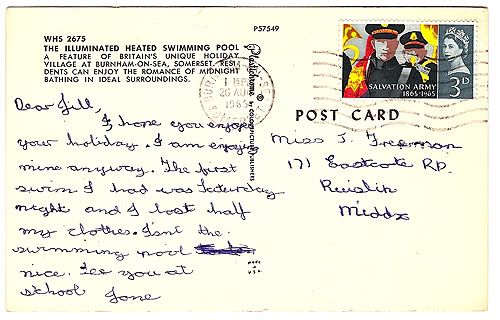 WHS 2675
THE ILLUMINATED HEATED SWIMMING POOL
A FEATURE OF BRITAIN'S UNIQUE HOLIDAY
VILLAGE AT BURNHAM-ON-SEA, SOMERSET. RESI-
DENTS CAN ENJOY THE ROMANCE OF MIDNIGHT
BATHING IN IDEAL SURROUNDINGS.
P57549
26 AUG
1965
SALVATION ARMY
1865-1965
3D
POST CARD
Dear Jill,
I hope you enjoyed
your holiday. I am enjoying
mine anyway. The first
swim I had was Saturday
night and I lost half
my clothes. Isnt the
swimming pool
nice. See you at
school Jone
MADE
IN
U.S.A.
Miss J. Freeman
171 Eastcote RD.
Ruislip
Middx